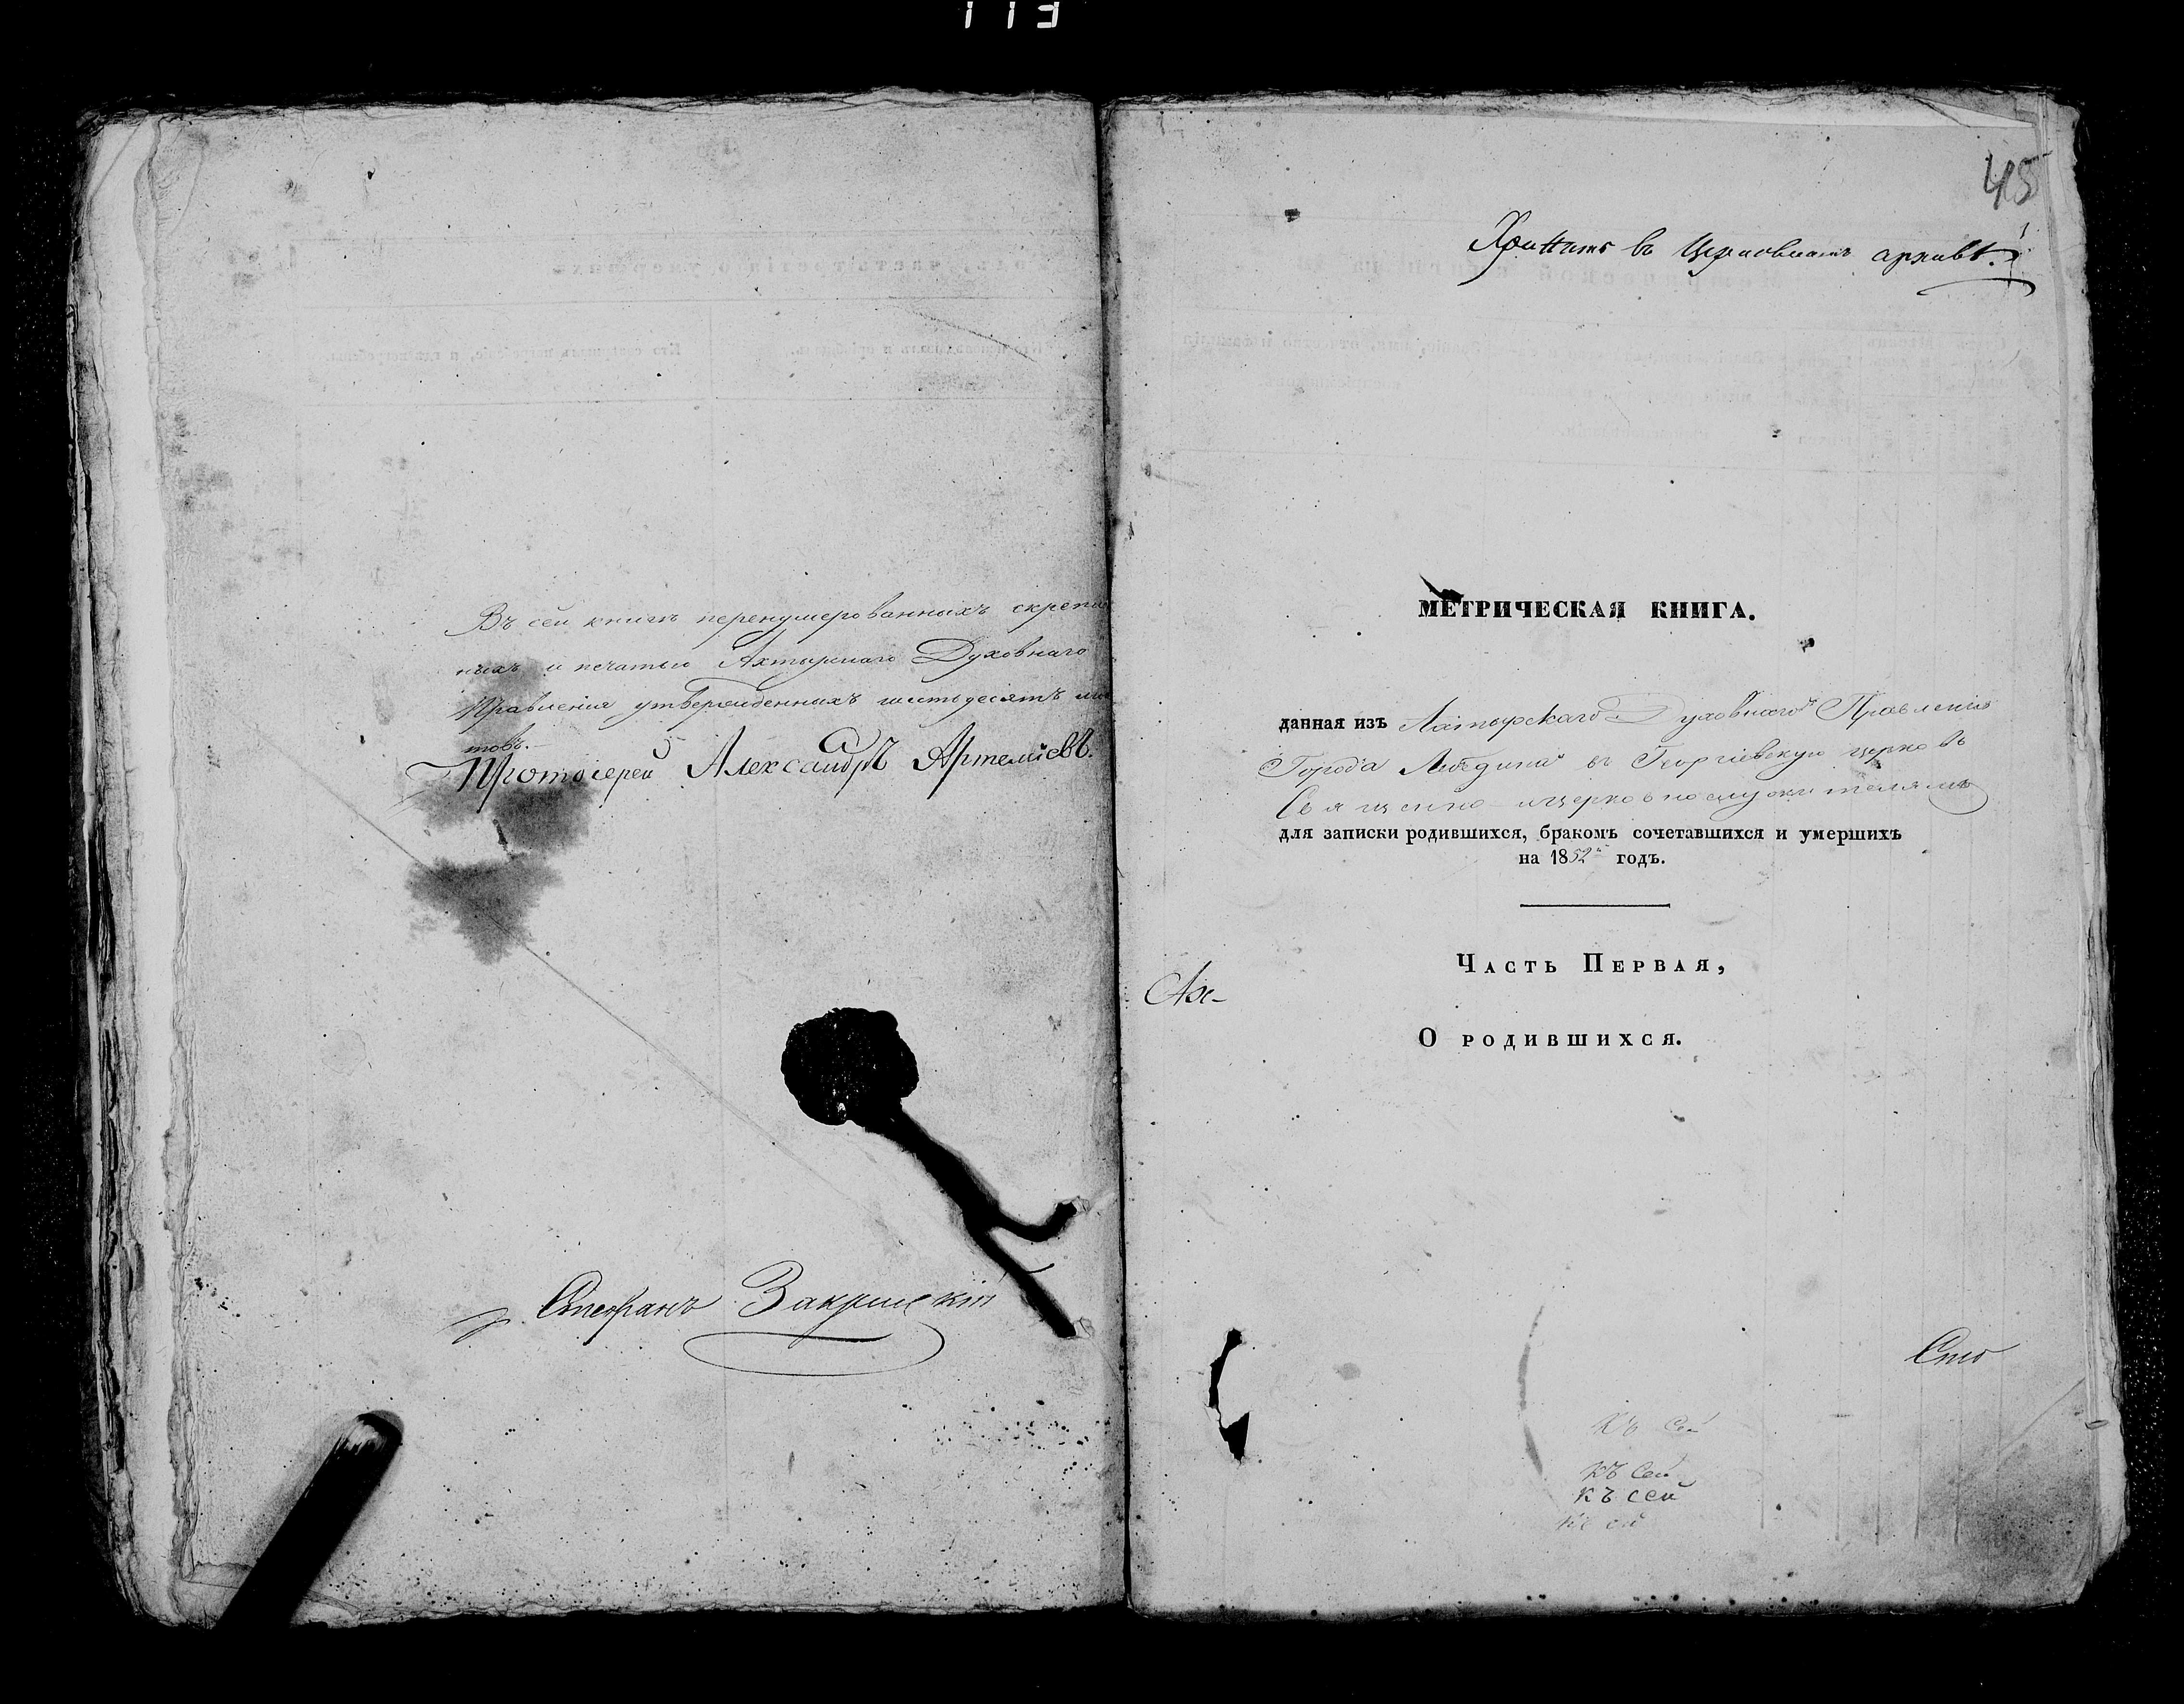 113
Въ сей книгѣ перенумерованныхъ скрепле
нныхъ и печатью Ахтырскаго Духовнаго
Правления утвержденныхъ шестьдесятъ лис
товъ.
Протоіерей Александръ Артеміевъ.
Стефанъ
45
Хранить въ Церковномъ архивѣ.
МЕТРИЧЕСКАЯ КНИГА.
данная изъ Ахтырскаго Духовнаго Правленія
Города Лебедина въ Георгіевскую церковь
Священно-церковнослужителямъ
для записки родившихся, бракомъ сочетавшихся и умершихъ
на 1852й годъ.
ЧАСТЬ ПЕРВАЯ,
Ах-
О РОДИВШИХСЯ.
Къ сей
Къ сей
Къ сей